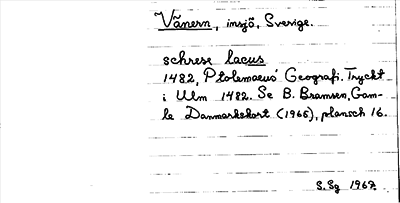 Vänern, insjö, Sverige.
schrese lacus
1482, Ptolemaeus' Geografi. Tryckt
i Ulm 1482. Se B. Bramsen, Gam-
le Danmarkskort (1965), plansch 16.
S.Sg 1967.